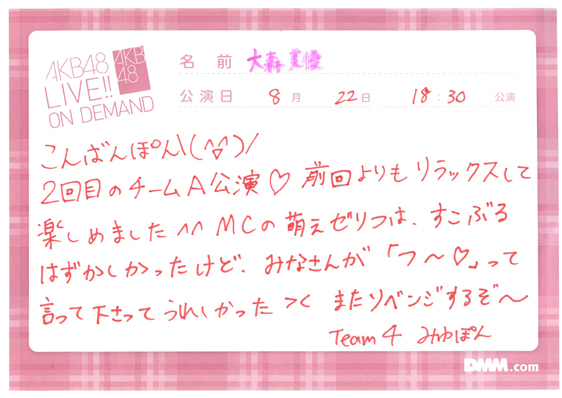 AKB48
LIVE!!
ON DEMAND
AKB
48
名前 大森美優
公演日 8月 22日 18:30 公演
こんばんぽん\(^o^)/
2回目のチームA公演♡ 前回よりもリラックスして
楽しめました^^ MCの萌えゼリフは、すこぶる
はずかしかったけど、みなさんが「フ〜♡」って
言って下さってうれしかった >< またリベンジするぞ〜
Team4 みゆぽん
DMM.com